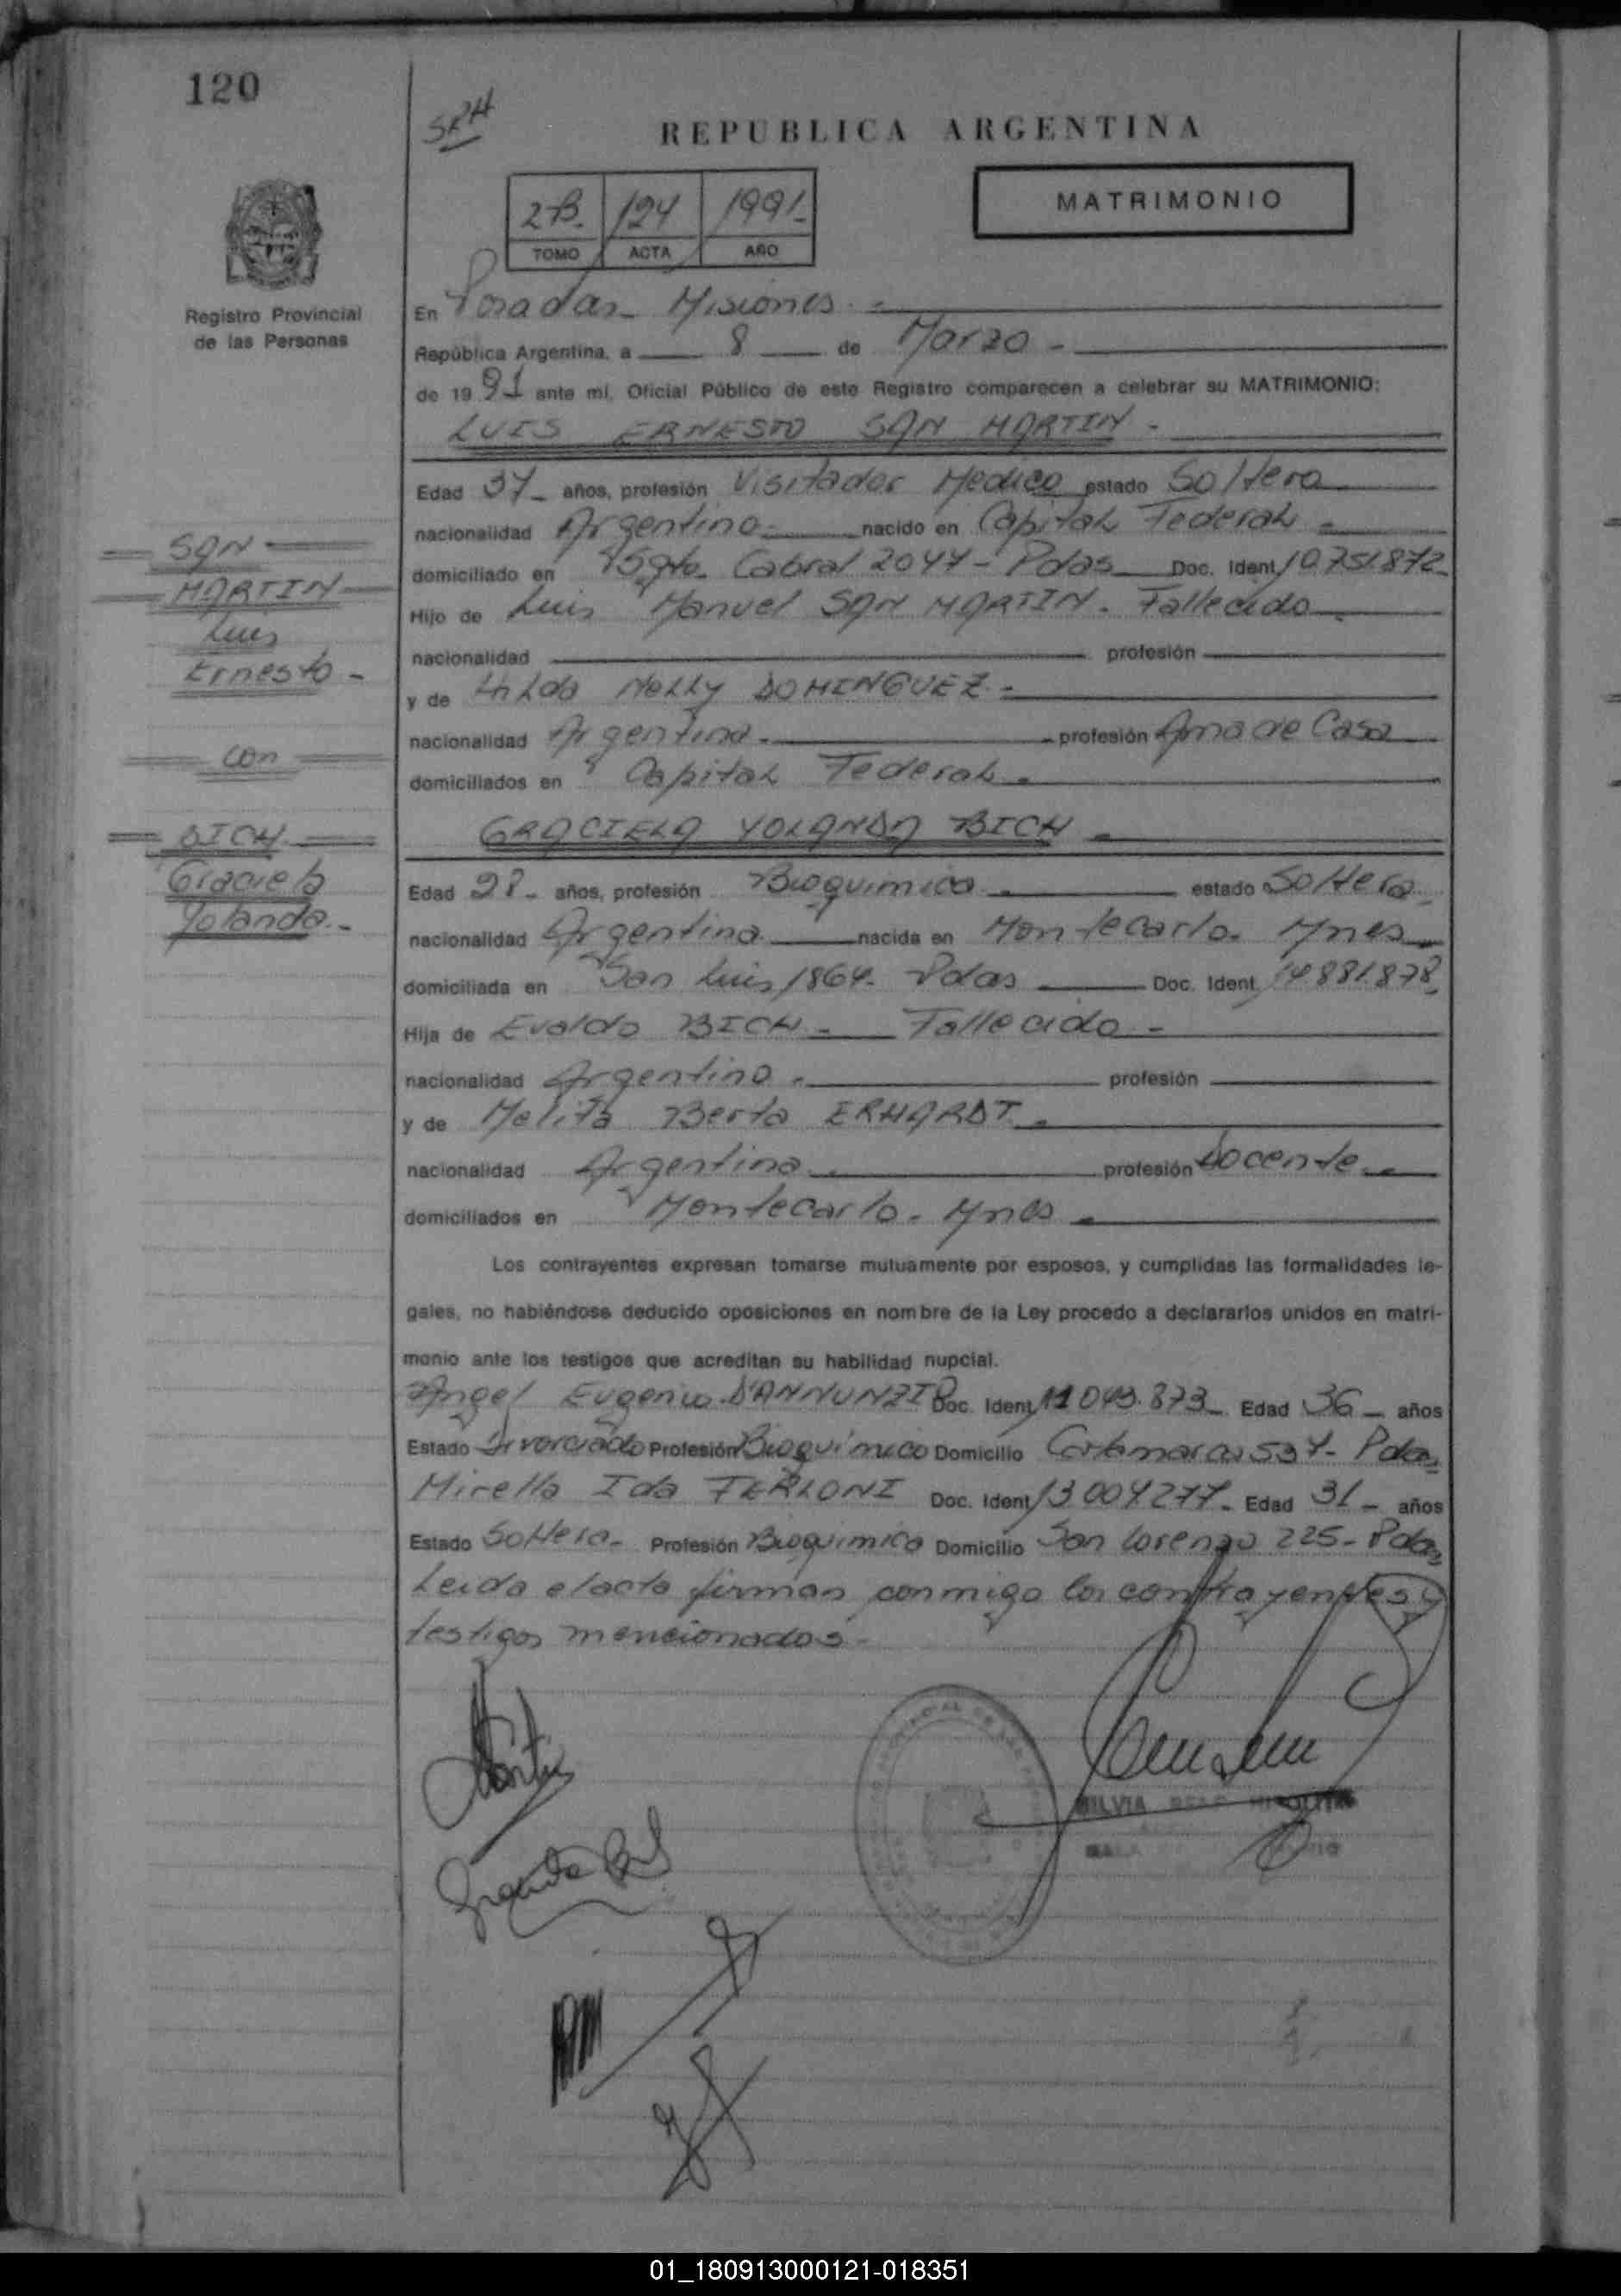 120
SRH
REPUBLICA ARGENTINA
2-B. 124 1991.
TOMO ACTA AÑO
MATRIMONIO
Registro Provincial
de las Personas
En Posadas - Misiones. -
República Argentina, a 8 de Marzo -
de 19 91 ante mí, Oficial Público de este Registro comparecen a celebrar su MATRIMONIO:
LUIS ERNESTO SAN MARTIN -
Edad 37 - años, profesión Visitador Medico estado Soltero
nacionalidad Argentino - nacido en Capital Federal -
domiciliado en Sgto. Cabral 2047 - Pdas Doc. Ident. 10.751.872
Hijo de Luis Manuel SAN MARTIN. Fallecido
nacionalidad profesión
y de Hilda Nelly DOMINGUEZ. -
nacionalidad Argentina. profesión Ama de Casa
domiciliados en Capital Federal. -
SAN
MARTIN
Luis
Ernesto -
con
BICH
Graciela
Yolanda. -
GRACIELA YOLANDA BICH -
Edad 28 - años, profesión Bioquimica - estado Soltera
nacionalidad Argentina nacida en Montecarlo. Mnes
domiciliada en San Luis 1864. Pdas Doc. Ident. 14.881.878
Hija de Evaldo BICH - Fallecido -
nacionalidad Argentino. profesión
y de Melita Berta ERHARDT. -
nacionalidad Argentina profesión Docente -
domiciliados en Montecarlo. Mnes -
Los contrayentes expresan tomarse mutuamente por esposos, y cumplidas las formalidades le-
gales, no habiéndose deducido oposiciones en nombre de la Ley procedo a declararlos unidos en matri-
monio ante los testigos que acreditan su habilidad nupcial.
Angel Eugenio D'ANNUNZIO Doc. Ident. 11 043.873 - Edad 36 - años
Estado Divorciado Profesión Bioquímico Domicilio Catamarca 537 - Pdas
Mirella Ida FERLONI Doc. Ident. 13 004277 - Edad 31 - años
Estado Soltera - Profesión Bioquimica Domicilio San Lorenzo 225 - Pdas
Leida el acta firman conmigo los contrayentes y
testigos mencionados -
SILVIA
01_180913000121-018351